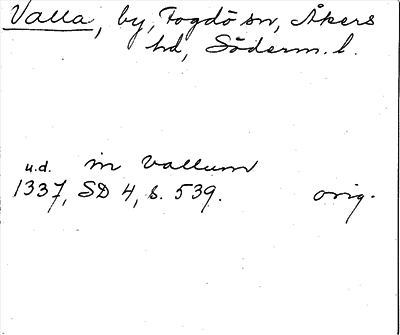 Valla, by, Fogdö sn, Åkers
hd, Söderm. l.
u.d. in Vallum
1337, SD 4, s. 539. orig.